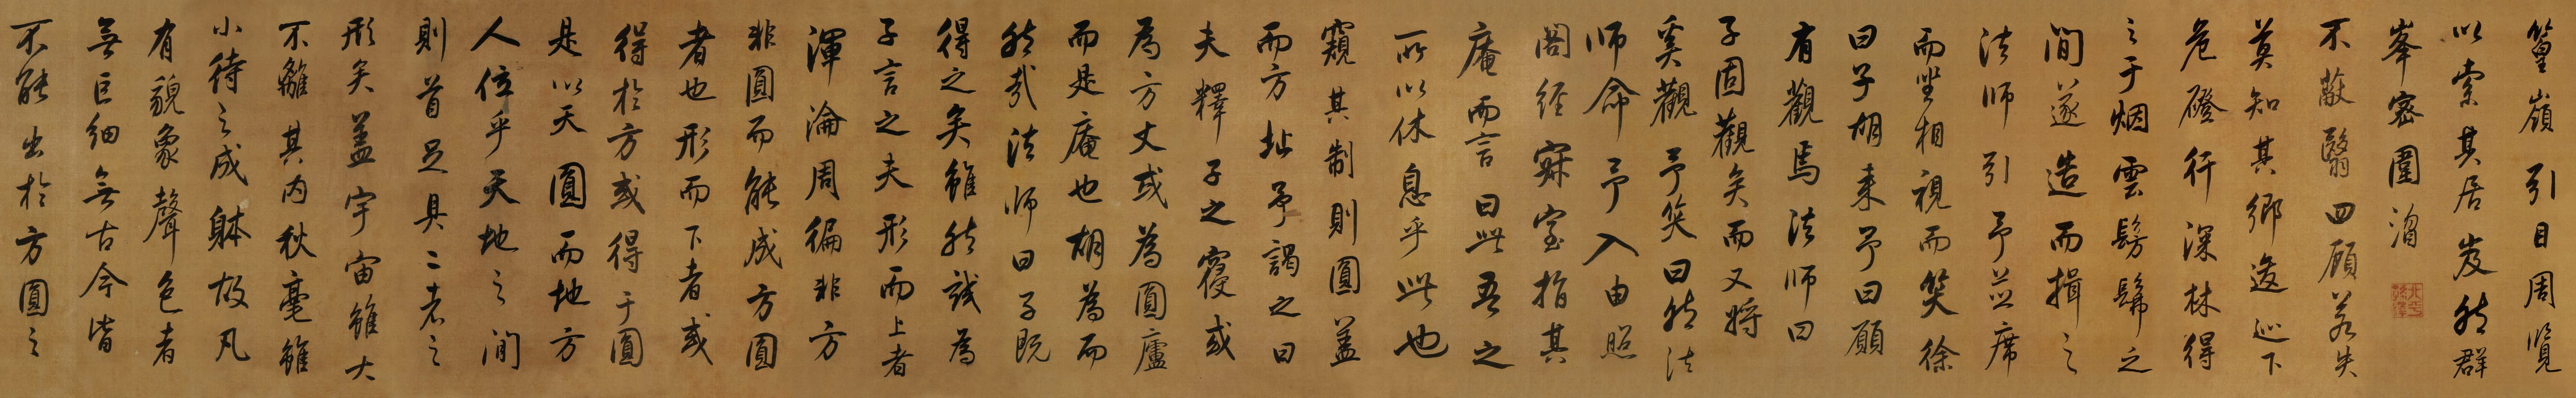 篁嶺引目周覽
以索其居岌然群
峯密圍溜
不蔽翳四顧若失
莫知其鄉逡巡下
危磴行深林得
之于烟雲髣髴之
間遂造而揖之
法師引予並席
而坐相視而笑徐
曰子胡来予曰願
有觀焉法師曰
子固觀矣而又將
奚觀予笑曰然法
師命予入由照
閣經寐室指其
庵而言曰此吾之
所以休息乎此也
窺其制則圓蓋
而方址予謁之曰
夫釋子之寢或
為方丈或為圓廬
而是庵也胡為而
然哉法師曰子既
得之矣雖然試為
子言之夫形而上者
渾淪周徧非方
非圓而能成方圓
者也形而下者或
得於方或得于圓
是以天圓而地方
人位乎天地之間
則首足具二者之
形矣蓋宇宙雖大
不離其内秋毫雖
小待之成躰故凡
有貌象聲色者
無巨細無古今皆
不能出於方圓之